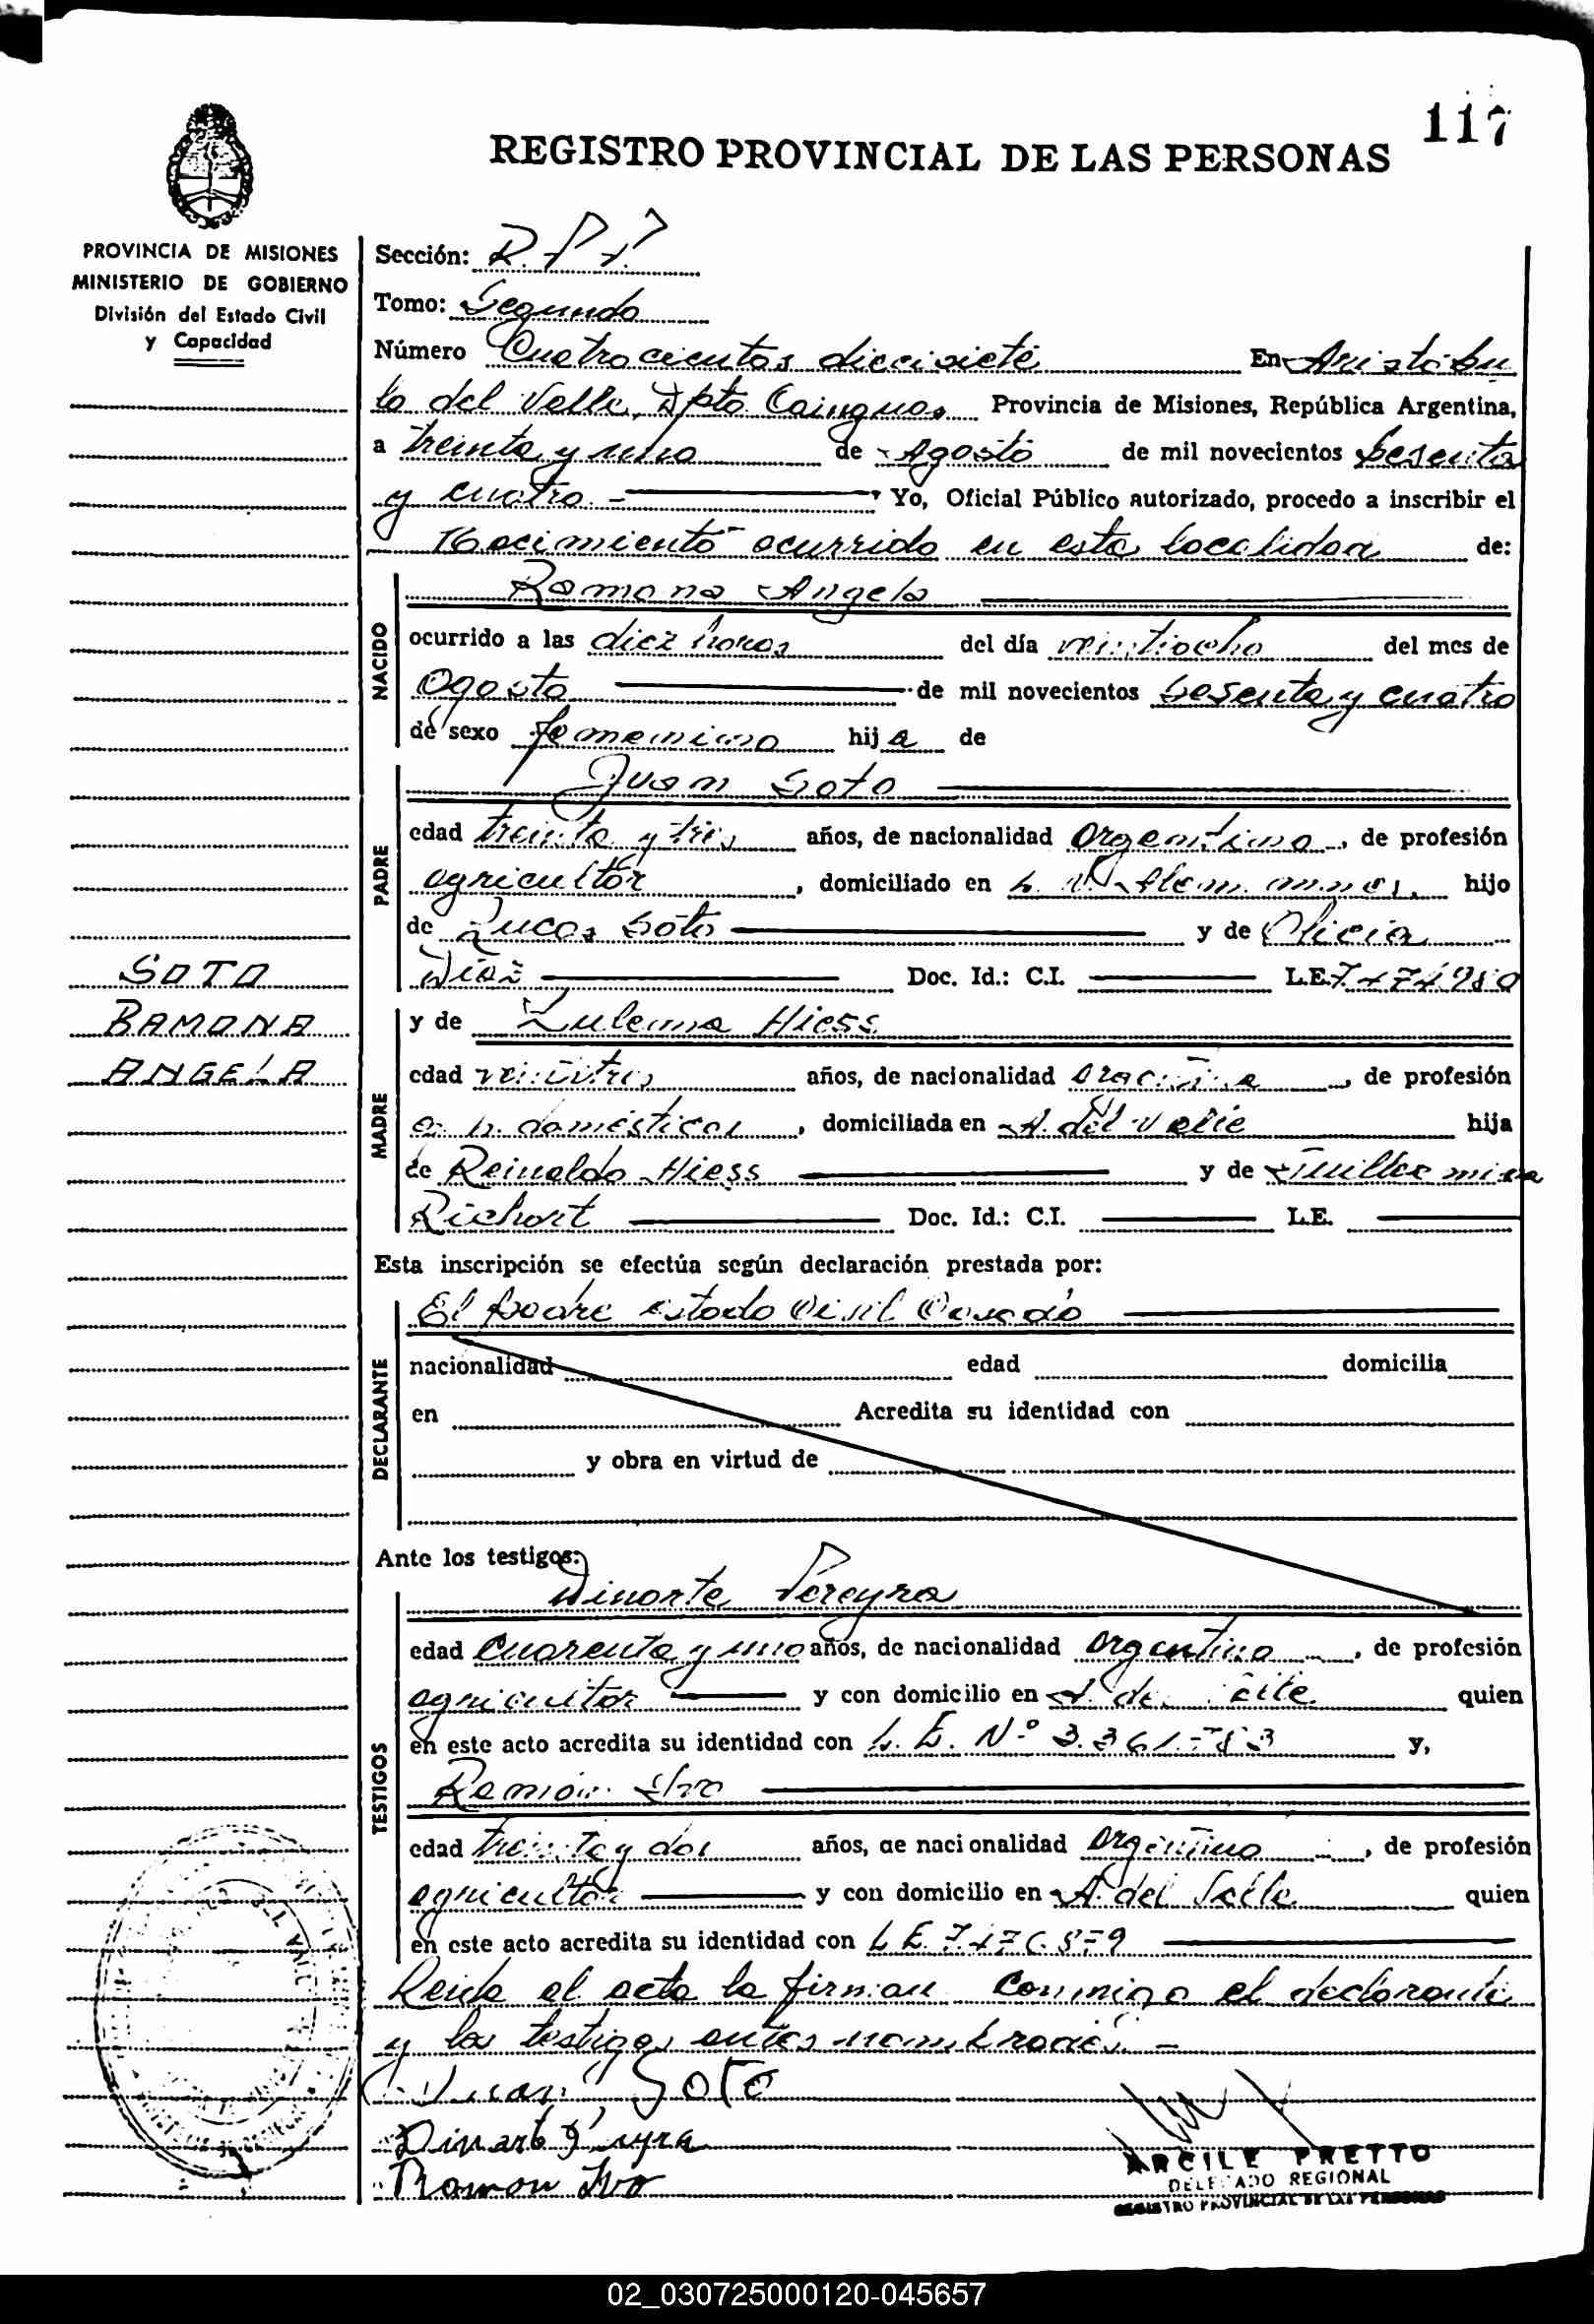 117
REGISTRO PROVINCIAL DE LAS PERSONAS
PROVINCIA DE MISIONES
MINISTERIO DE GOBIERNO
División del Estado Civil
y Capacidad
Sección: R.P.P.
Tomo: Segundo
Número Cuatrocientos diecisiete En Aristóbu
lo del Valle, Dpto Cainguas Provincia de Misiones, República Argentina,
a treinta y uno de Agosto de mil novecientos sesenta
y cuatro Yo, Oficial Público autorizado, procedo a inscribir el
Nacimiento ocurrido en esta localidad de:
NACIDO
Ramona Angela
ocurrido a las diez horas del día veintiocho del mes de
Agosto de mil novecientos sesenta y cuatro
de sexo femenino hija de
PADRE
Juan Soto
edad treinta y tres años, de nacionalidad argentino, de profesión
agricultor, domiciliado en hijo
de Lucas Soto y de Alicia
Diaz Doc. Id.: C.I. L.E.
SOTO
RAMONA
ANGELA
MADRE
y de Zulema Hiess
edad veintitres años, de nacionalidad argentina, de profesión
q. h. domésticos, domiciliada en A. del Valle hija
de Reinaldo Hiess y de Guillermina
Richort Doc. Id.: C.I. L.E.
Esta inscripción se efectúa según declaración prestada por:
DECLARANTE
El padre estado Civil Casado
nacionalidad edad domicilia
en Acredita su identidad con
y obra en virtud de
Ante los testigos:
TESTIGOS
Dinorte Pereyra
edad Cuarenta y uno años, de nacionalidad argentino, de profesión
agricultor y con domicilio en A. del Valle quien
en este acto acredita su identidad con L. E. Nº y,
Ramón Ivo
edad treinta y dos años, de nacionalidad argentino, de profesión
agricultor y con domicilio en A. del Valle quien
en este acto acredita su identidad con L E
Leida el acta la firman conmigo el declarante
y los testigos antes nombrados.-
Juan Soto
Ramon Ivo
ARCILE PRETTO
DELEGADO REGIONAL
REGISTRO PROVINCIAL DE LAS PERSONAS
02_030725000120-045657